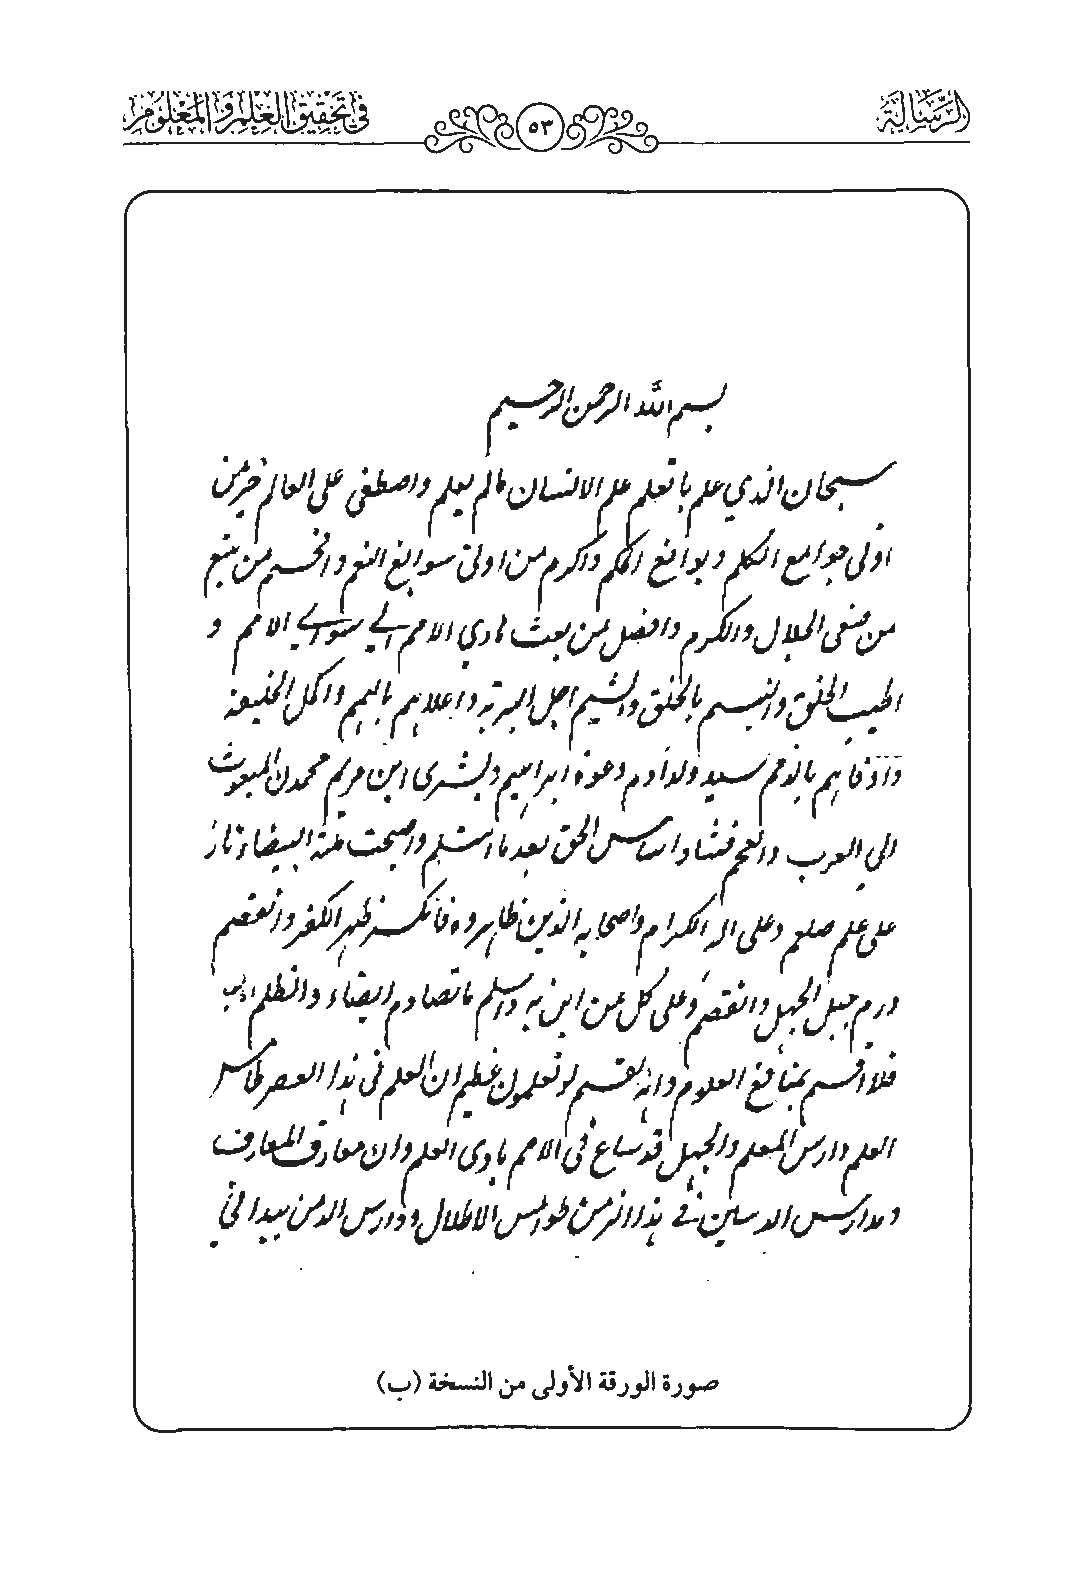 الرسالة
٥٣
في تحقيق العلم والمعلوم
بسم الله الرحمن الرحيم
سبحان الذي علم بالقلم علم الانسان مالم يعلم واصطفى على العالم خير من
اوتى جوامع الكلم وبدائع الحكم واكرم من اولى سوابغ النعم وافخم من ينبع
من الجلال والكرم وافضل من بعث هادي الامم الي سوا الامم و
اطيب الخلق والنسم بالخلق والشيم اجل البرية واعلاهم بالهمم واكمل الخليقة
واوفاهم بالذمم سيد ولد ادم دعوة ابراهيم وبشرى ابن مريم محمدن المبعوث
الي العرب والعجم فشاد اساس الحق بعد ما انثلم واصبحت ملته البيضاء نار
على علم صلعم وعلى اله الكرام واصحابه الذين ظاهروه فانكسر ظهر الكفر وانقصم
ورم حبل الجهل وانفصم وعلى كل من امن به واسلم ما تصادم الضياء والظلم اما بعد
فلا اقسم بمنافع العلوم وانه لقسم لو تعلمون عظيم ان العلم في هذا العصر طامس
العلم دارس المعلم والجهل قد ساع في الامم بادى العلم وان معارف المعارف
ومدارس الدين في هذا الزمن طوامس الاطلال ودارس الدمن بيد اني
صورة الورقة الأولى من النسخة (ب)